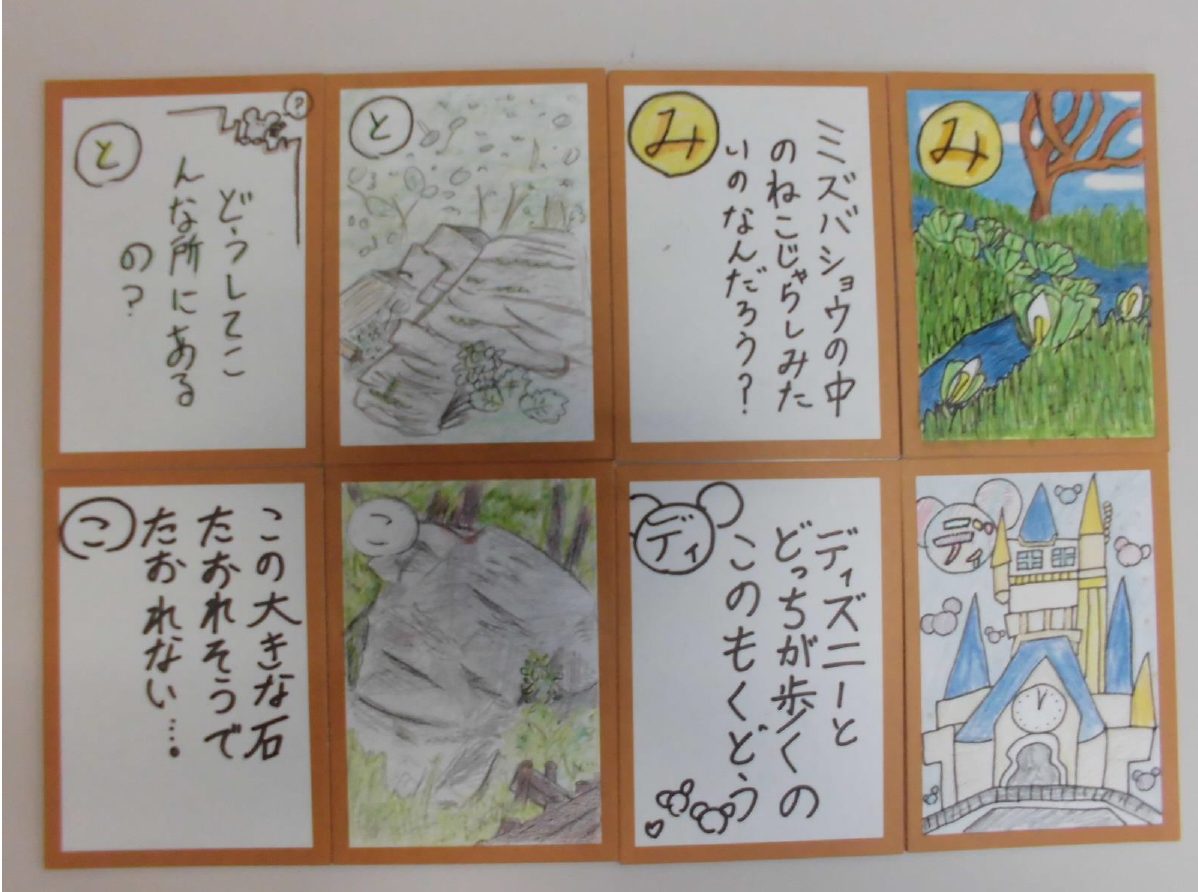 と
どうしてこ
んな所にある
の？
?
と
み
ミズバショウの中
のねこじゃらしみた
いのなんだろう？
み
こ
この大きな石
たおれそうで
たおれない…。
こ
ディ
ディズニーと
どっちが歩くの
このもくどう
ディ